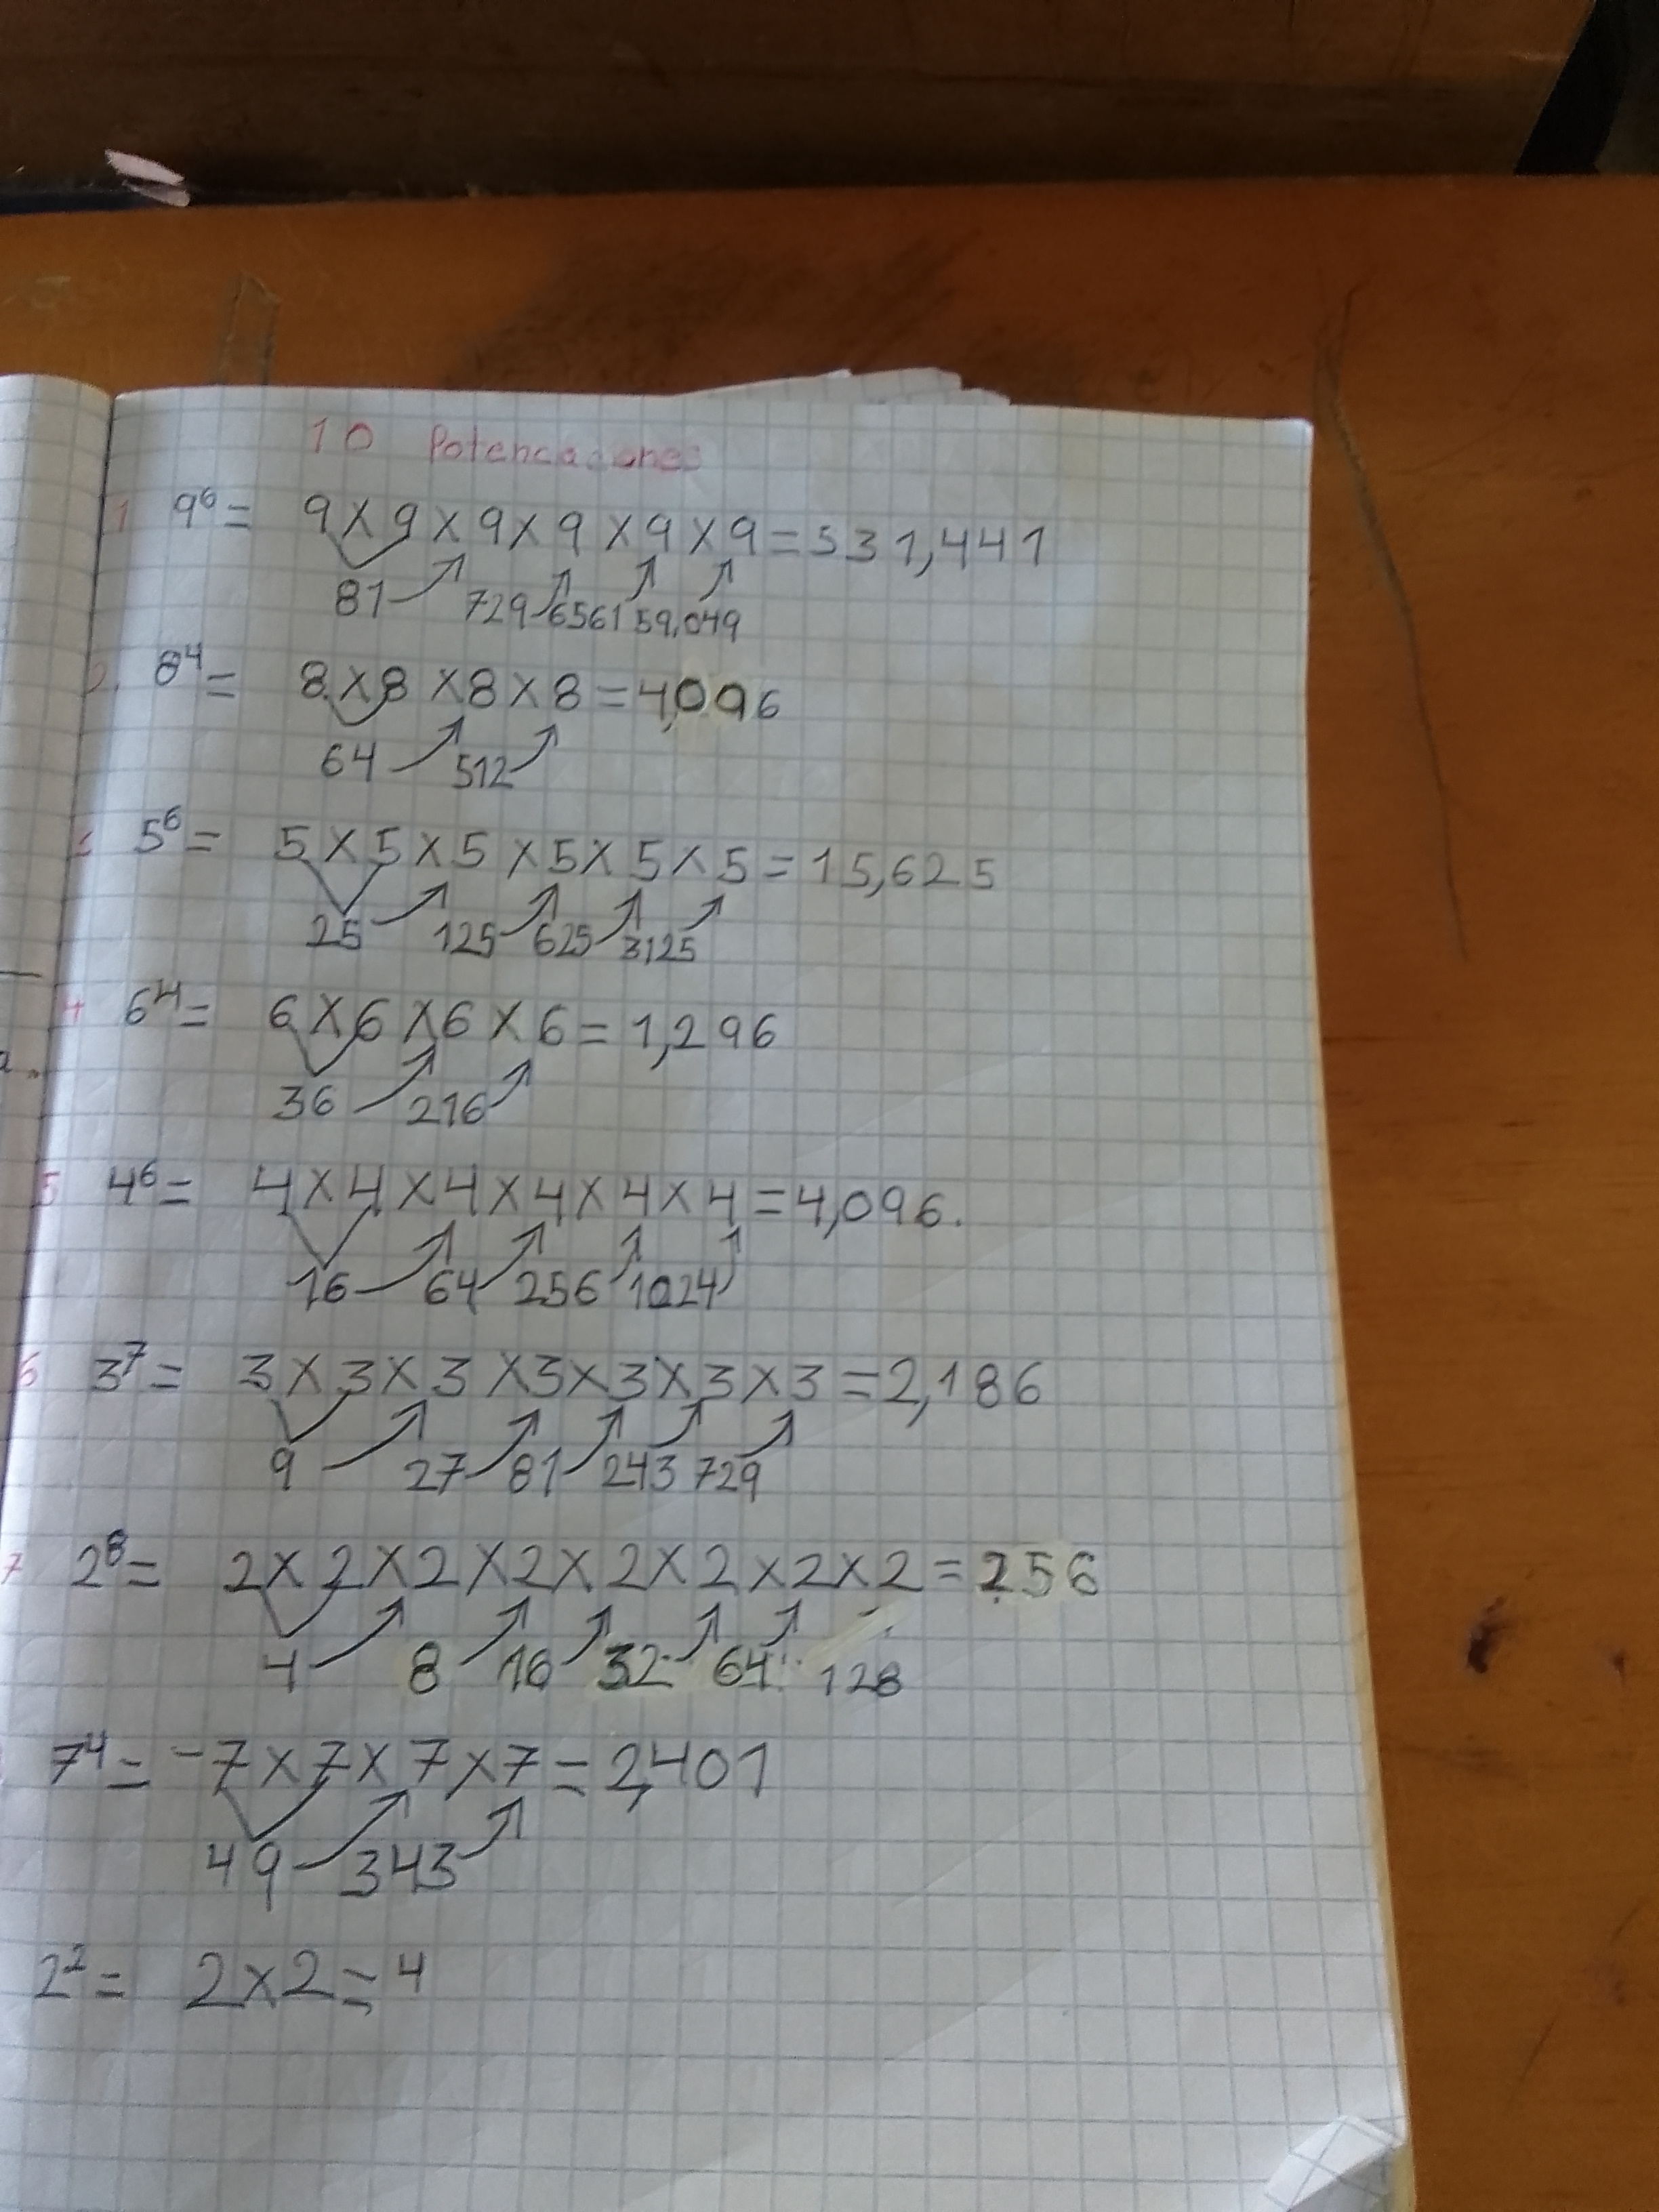 10 Potencaciones
1 9⁶= 9x9x9x9x9x9=531,441
81 729 6561 59,049
2. 8⁴= 8x8x8x8=4,096
64 512
5⁶= 5x5x5x5x5x5=15,625
25 125 625 3125
4 6⁴= 6x6x6x6=1,296
36 216
5 4⁶= 4x4x4x4x4x4=4,096.
16 64 256 1024
6 3⁷= 3x3x3x3x3x3x3=2,186
9 27 81 243 729
7 2⁸= 2x2x2x2x2x2x2x2=256
4 8 16 32 64 128
7⁴= -7x7x7x7=2,401
49 343
2²= 2x2=4